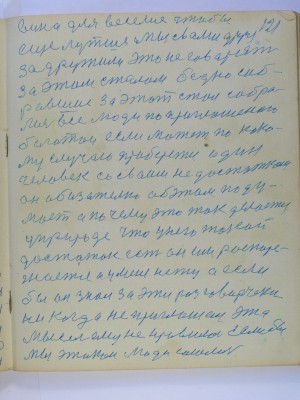 вина для веселия чтобы 121
еще лутше мы свами друг
за другими это не говорят
за этом сталом бедно саб-
равшие за этот стол собра-
лися все люди по приглошению
богатои если может по како-
му случаю приберети один
человек со своим недостатком
он обизателно об этом поду-
мает а почему это так делается
уприроде что у него токой
достаток ест он им распоре-
жается а умения нету а если
бы он знал за эти разговарчеки
никогда не приглошал эта
мысел ему не нравилос если бы
мы этакои люди